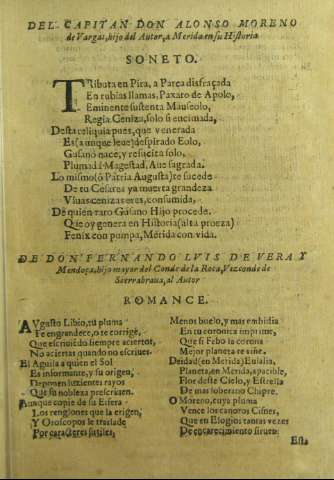 DEL CAPITAN DON ALONSO MORENO
de Vargas, hijo del Autor, a Merida en su Historia
SONETO.
TRibuta en Pira, a Parca disfraçada
En rubias llamas, Paxaro de Apolo,
Eminente sustenta Mauseolo,
Regia Ceniza, solo si encimada,
Desta reliquia pues, que venerada
Es (aunque leue) despirado Eolo,
Gusano nace, y resucita solo,
Pluma di Magestad, Aue sagrada.
Lo mismo (ô Patria Augusta) te sucede
De tu Cesares ya muerta grandeza
Viuas cenizas eres, consumida,
De quien raro Gusano Hijo procede.
Que oy genera en Historia (alta proeza)
Fenix con pompa, Mérida con vida.
DE DON FERNANDO LVIS DE VERA Y
Mendoça, hijo mayor del Conde de la Roca, Vizconde de
Sierrabraua, al Autor
ROMANCE.
AVgusto Libio, tu pluma
Te engrandece, o te corrige,
Que escriuiẽdo siempre aciertos,
No aciertas quando no escriues.
El Aguila a quien el Sol
Es informante, y su origen,
Deponen luzientes rayos
Que su nobleza prescriuen.
Aunque copie de su Esfera
Los renglones que la erigen,
Y Oroscopos le traslade
Por caracteres sutiles,
Menos buelo, y mas embidia
En tu coronica imprime,
Que si Febo la corona
Mejor planeta te ciñe.
Deidad (en Merida) Eulalia,
Planeta, en Merida, apacible,
Flor deste Cielo, y Estrella
De mas soberano Chipre.
O Moreno, cuya pluma
Vence los canoros Cisnes,
Que en Elogios tantas vezes
De encarecimiento siruen:
Esta